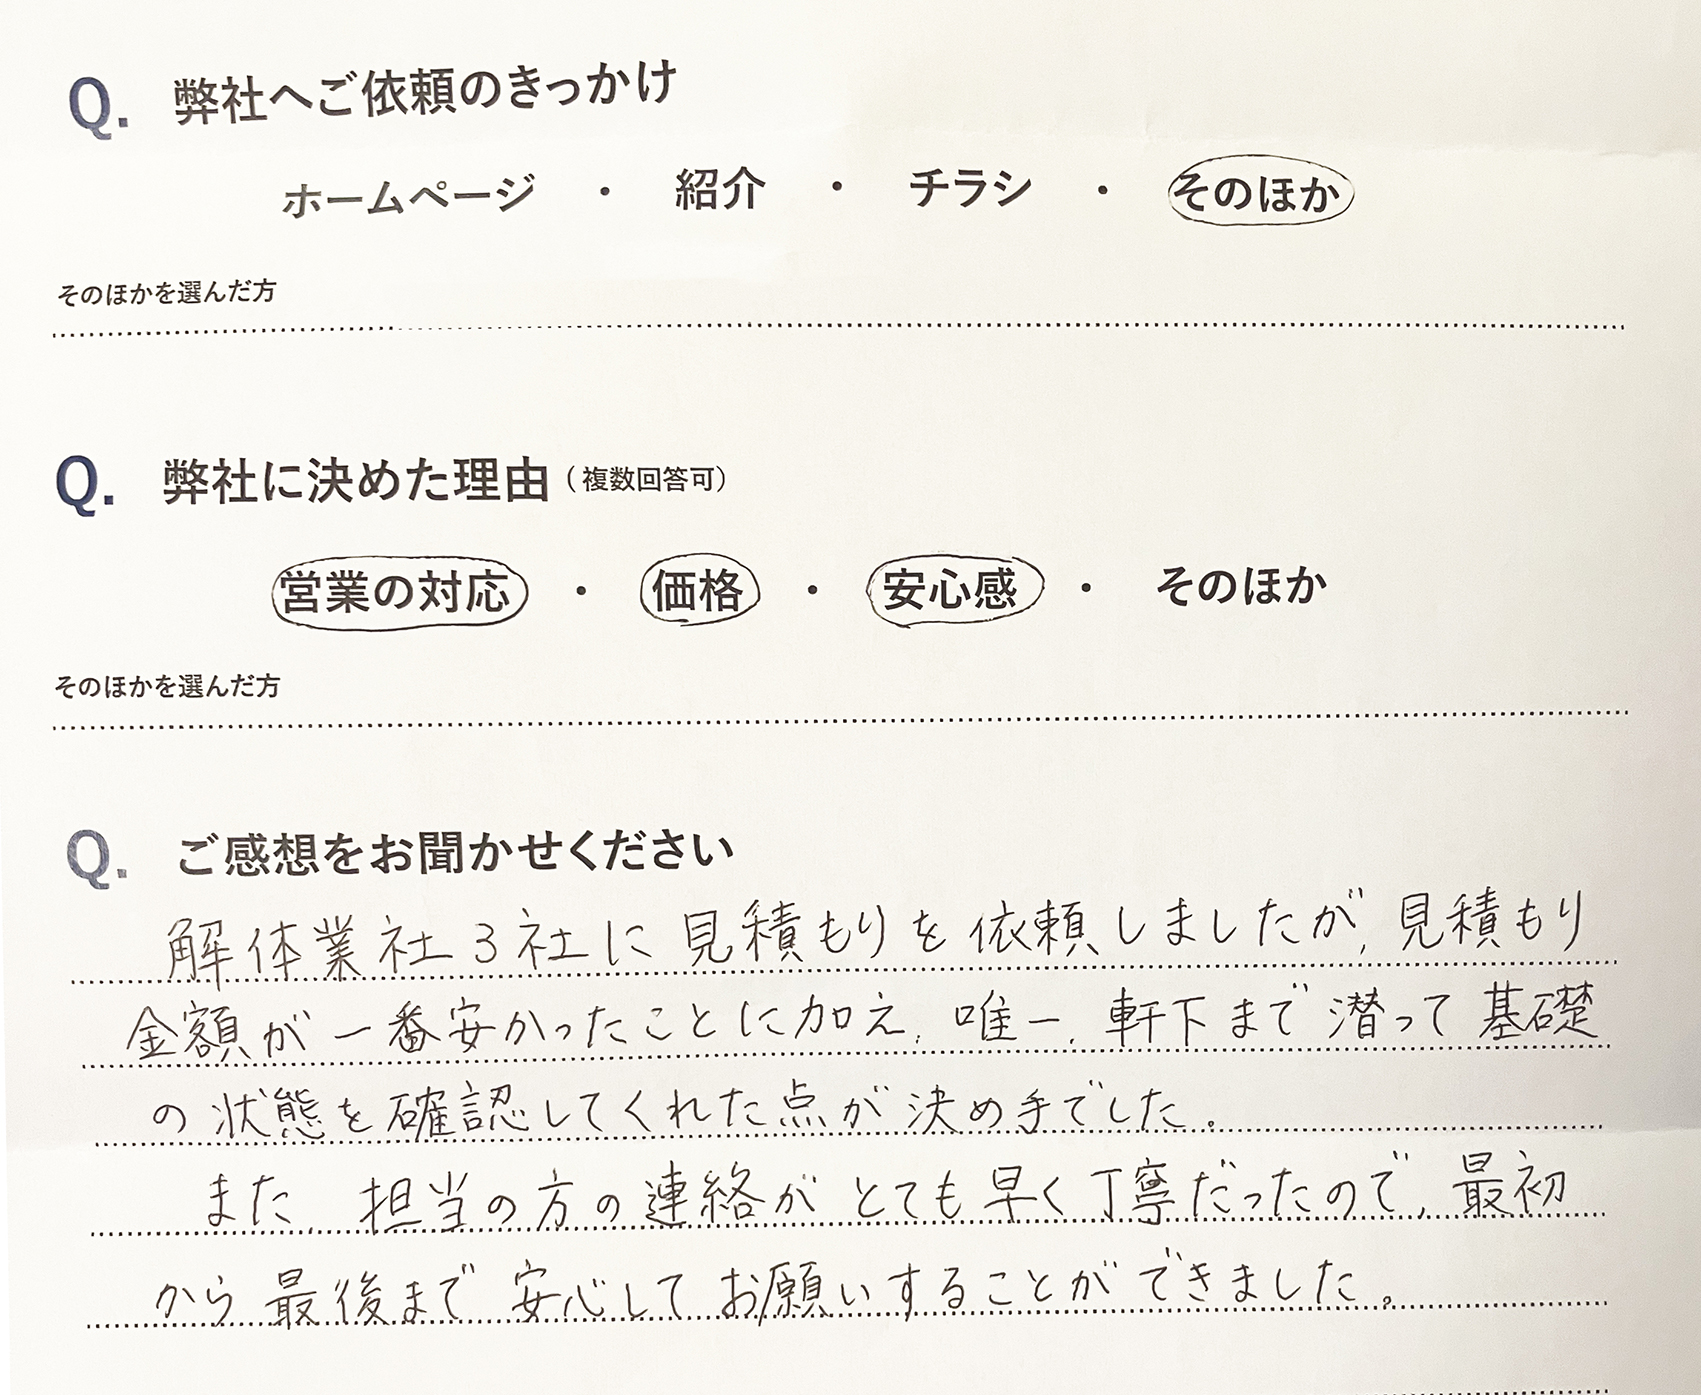 Q. 弊社へご依頼のきっかけ
ホームページ ・ 紹介 ・ チラシ ・ そのほか
そのほかを選んだ方
Q. 弊社に決めた理由（複数回答可）
営業の対応 ・ 価格 ・ 安心感 ・ そのほか
そのほかを選んだ方
Q. ご感想をお聞かせください
解体業社3社に見積もりを依頼しましたが、見積もり
金額が一番安かったことに加え、唯一、軒下まで潜って基礎
の状態を確認してくれた点が決め手でした。
また、担当の方の連絡がとても早く丁寧だったので、最初
から最後まで安心してお願いすることができました。